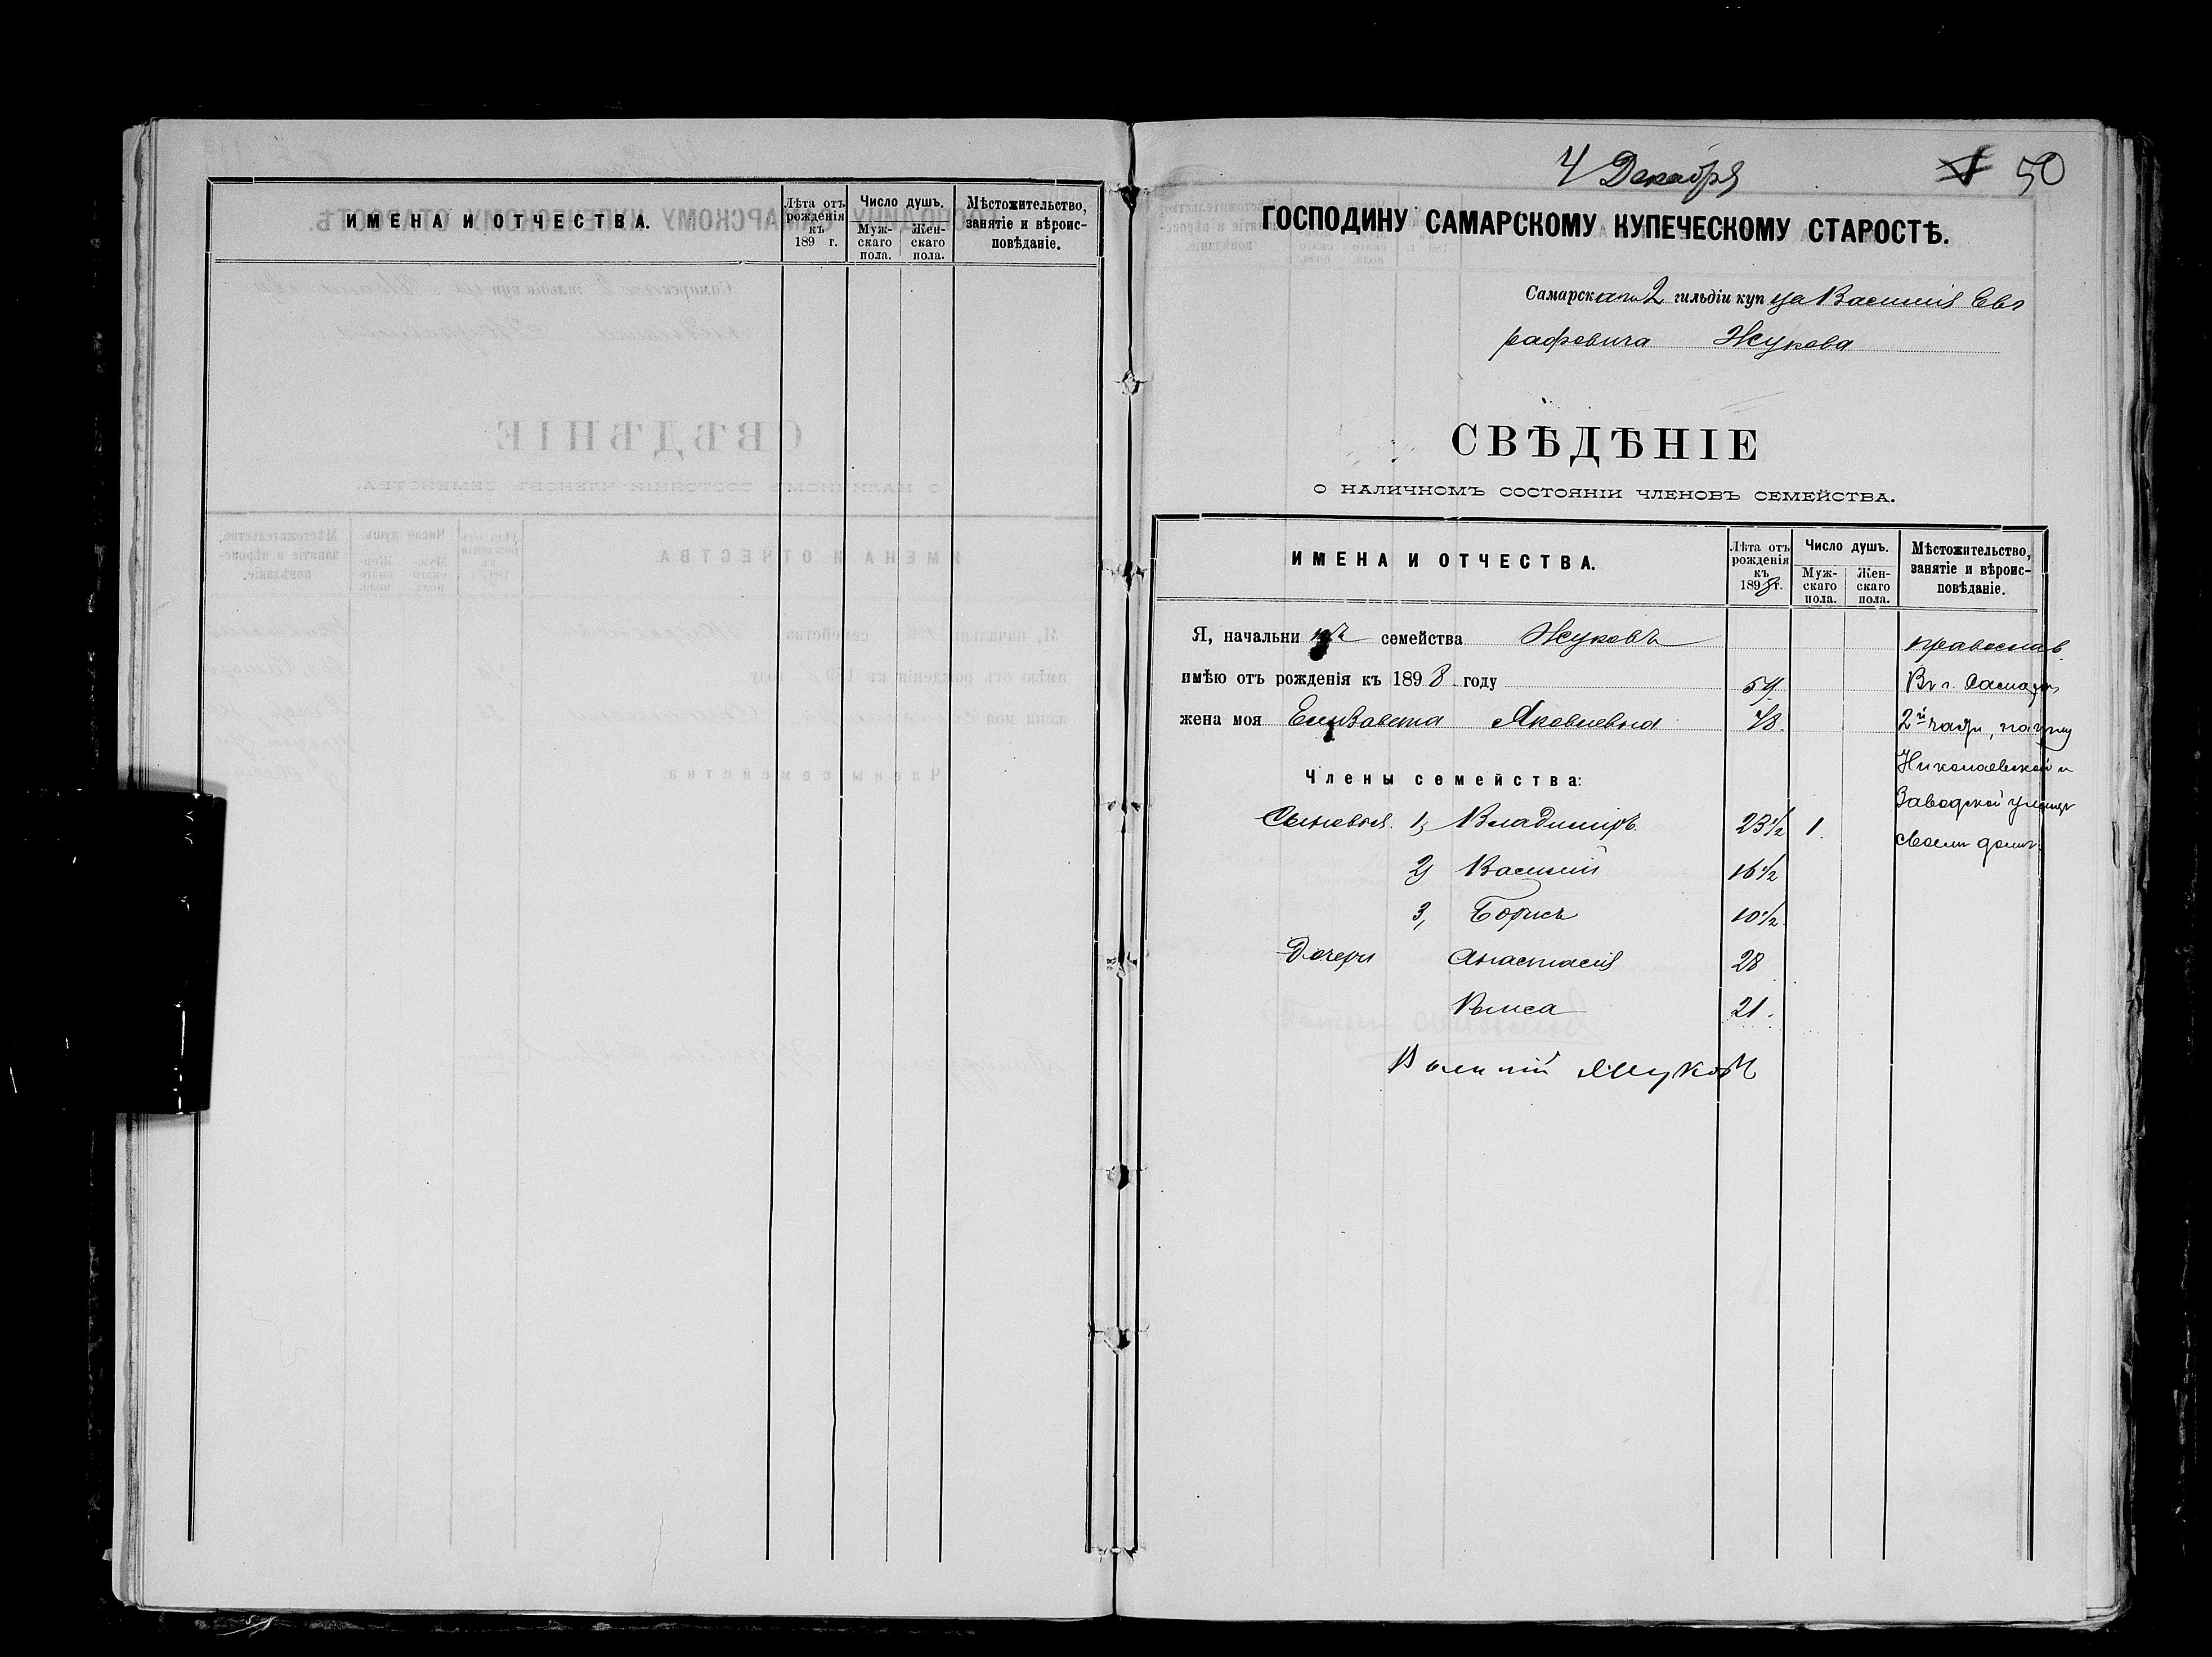 ИМЕНА И ОТЧЕСТВА.
Лѣта отъ рожденія къ 189 г.
Число душъ.
Мужскаго пола.
Женскаго пола.
Мѣстожительство, занятіе и вѣроисповѣданіе.
4 Декабря
50
ГОСПОДИНУ САМАРСКОМУ КУПЕЧЕСКОМУ СТАРОСТѢ.
Самарскаго 2 гильдіи купца Василія Евг
рафовича Жукова
СВѢДѢНІЕ
О НАЛИЧНОМЪ СОСТОЯНІИ ЧЛЕНОВЪ СЕМЕЙСТВА.
ИМЕНА И ОТЧЕСТВА.
Лѣта отъ рожденія къ 1898 г.
Число душъ.
Мужскаго пола.
Женскаго пола.
Мѣстожительство, занятіе и вѣроисповѣданіе.
Я, начальникъ семейства Жуковъ православ.
имѣю отъ рожденія къ 1898 году Въ г. Самарѣ
жена моя Елизавета Яковлевна 48. 2й части, на углу
Николаевской и
Члены семейства:
Заводской улицъ
Сыновья. 1, Владиміръ. 23 1/2 1.
своемъ домѣ.
2, Василій 16 1/2
3, Борисъ 10 1/2
Дочери Анастасія 28
21.
Василій Жуковъ